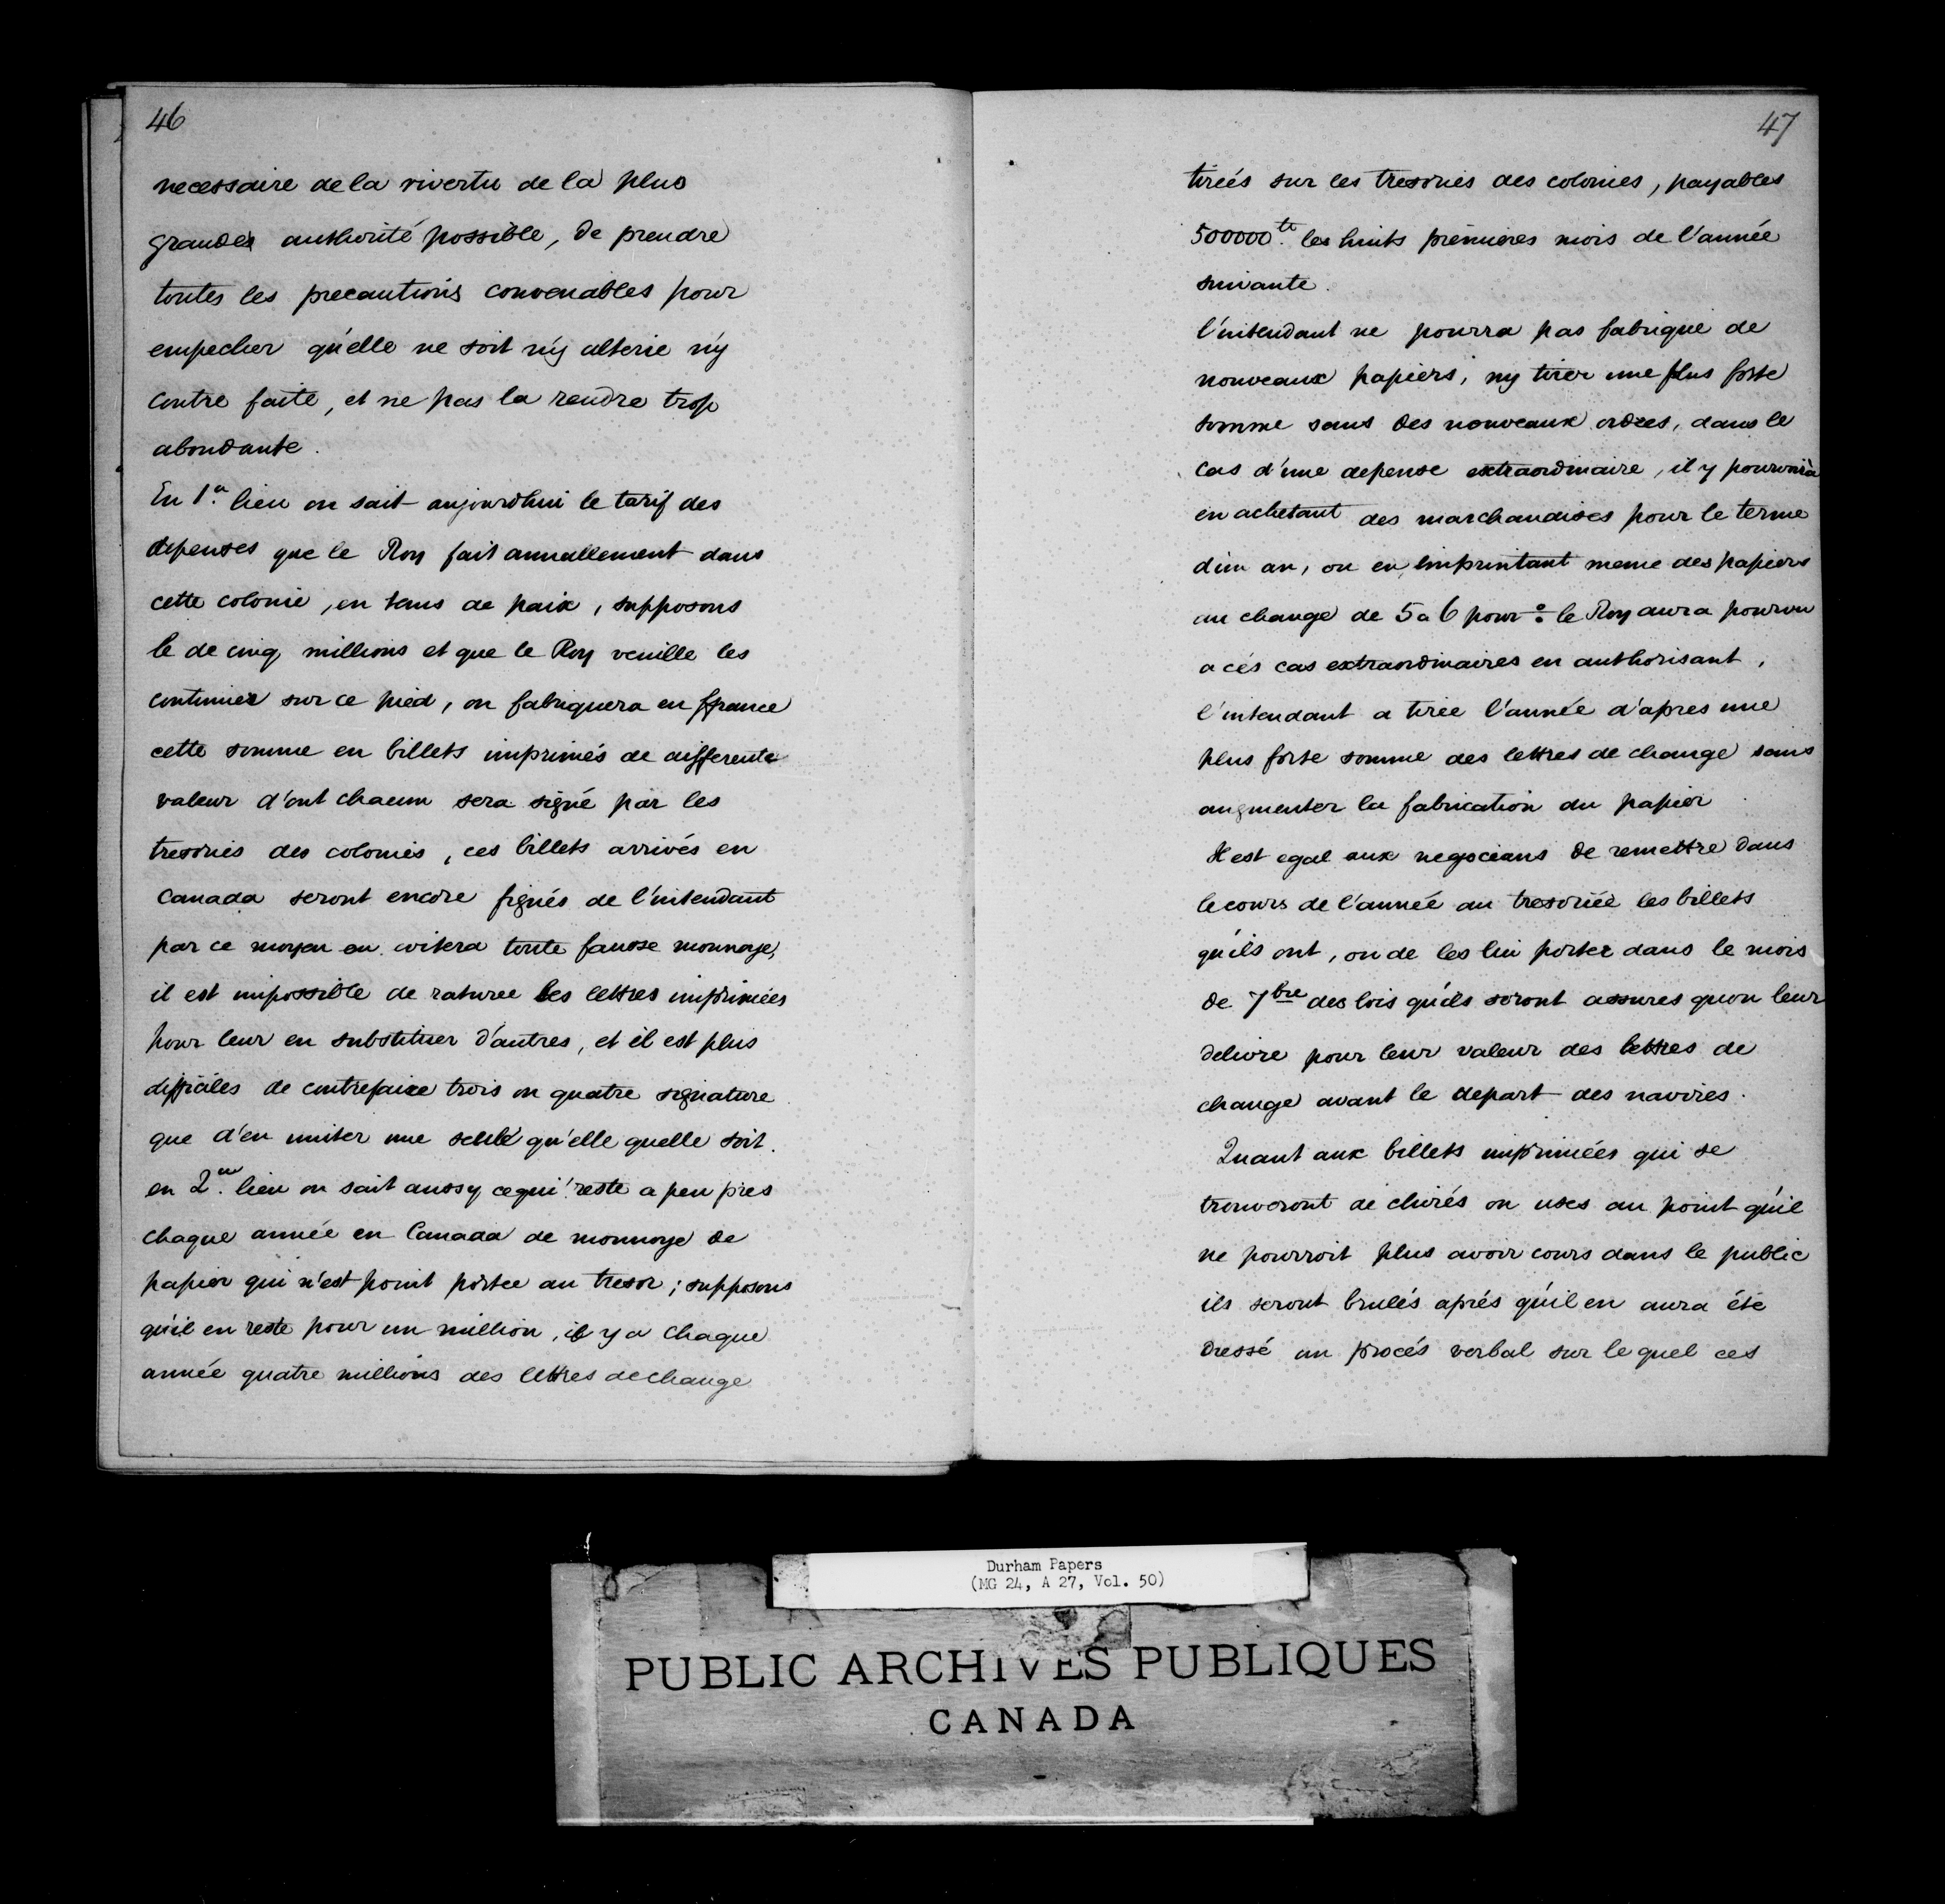 46
necessaire de la rivertu de la plus
grande authorité possible, de prendre
toutes les precautions convenables pour
empecher qu'elle ne soit n'y alterie n'y
contre faite, et ne pas la rendre trop
abondante.
En 1.er lieu on sait aujourdhui le tarif des
depenses que le Roy fait annallement dans
cette colonie, en tems de paix, supposons
le de cinq millions et que le Roy veuille les
continuer sur ce pied, on fabriquera en ffrance
cette somme en billets imprimés de differente
valeur d'ont chacun sera signé par les
tresoriés des colonies, ces billets arrivés en
Canada seront encore signés de l'intendant
par ce moyen on evitera toute fausse monnoye,
il est impossible de raturer les lettres imprimées
pour leur en substituer d'autres, et il est plus
difficiles de contrefaire trois ou quatre signature
que d'en imiter une seule qu'elle quelle soit.
en 2.eu lieu on sait aussy cequi reste a peu pres
chaque année en Canada de monnoye de
papier qui n'est point portée au tresor; supposons
qu'il en reste pour un million, il y a chaque
année quatre millions des lettres dechange
47
tireés sur les tresoriés des colonies, payables
500000.te les huits premieres mois de l'année
suivante.
l'intendant ne pourra pas fabriqué de
nouveaux papiers, ny tirer une plus forte
somme sans des nouveaux ordres, dans le
cas d'une depense extraordinaire, il y pourvoira
en achetant des marchandises pour le terme
d'un an, ou en empruntant meme des papiers
au change de 5 a 6 pour % le Roy aura pourvu
a cés cas extraordinaires en authorisant,
l'intendant a tirée l'année d'apres une
plus forte somme des lettres de change sans
augmenter la fabrication du papier
Il est egal aux negocians de remettre dans
lecours de l'anneé au tresoriée les billets
qu'ils ont, ou de les lui porter dans le mois
de 7bre des lois qu'ils seront assures quon leur
delivre pour leur valeur des lettres de
change avant le depart des navires.
Quant aux billets impriméés qui se
trouveront de chirés ou uses au point qu'il
ne pourroit plus avoir cours dans le public
ils seront brulés aprés qu'il en aura été
dressé un procés verbal sur le quel ces
Durham Papers
(MG 24, A 27, Vol. 50)
PUBLIC ARCHIVES PUBLIQUES
CANADA